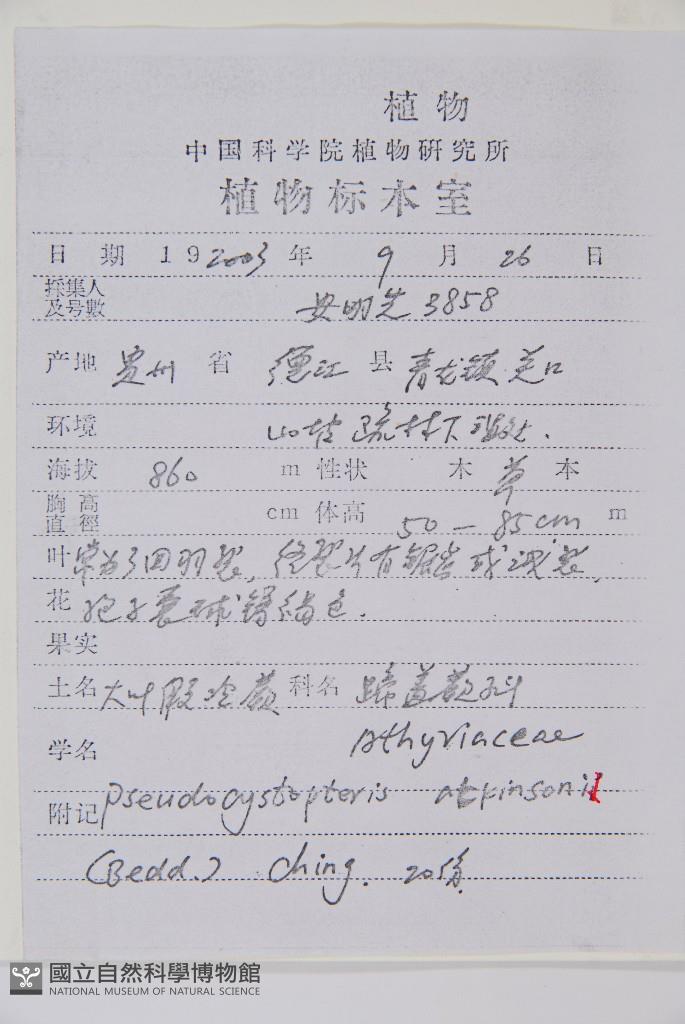 植物
中国科学院植物研究所
植物标本室
日 期 19 2003 年 9 月 26 日
採集人
及号數 安明先 3858
产地 贵州 省 德江 县 青龙镇 关口
环境 山坡疏林下
海拔 860 m 性状 木 草 本
胸高
直徑 cm 体高 50 — 85cm m
叶 常为3回羽裂, 有锯齿或浅裂,
花 孢子囊球 褐色.
果实
土名 大叶假冷蕨 科名 蹄盖蕨科
学名 Athyriaceae
附记 Pseudocystopteris atkinsonii
(Bedd.) Ching. 20份
國立自然科學博物館
NATIONAL MUSEUM OF NATURAL SCIENCE